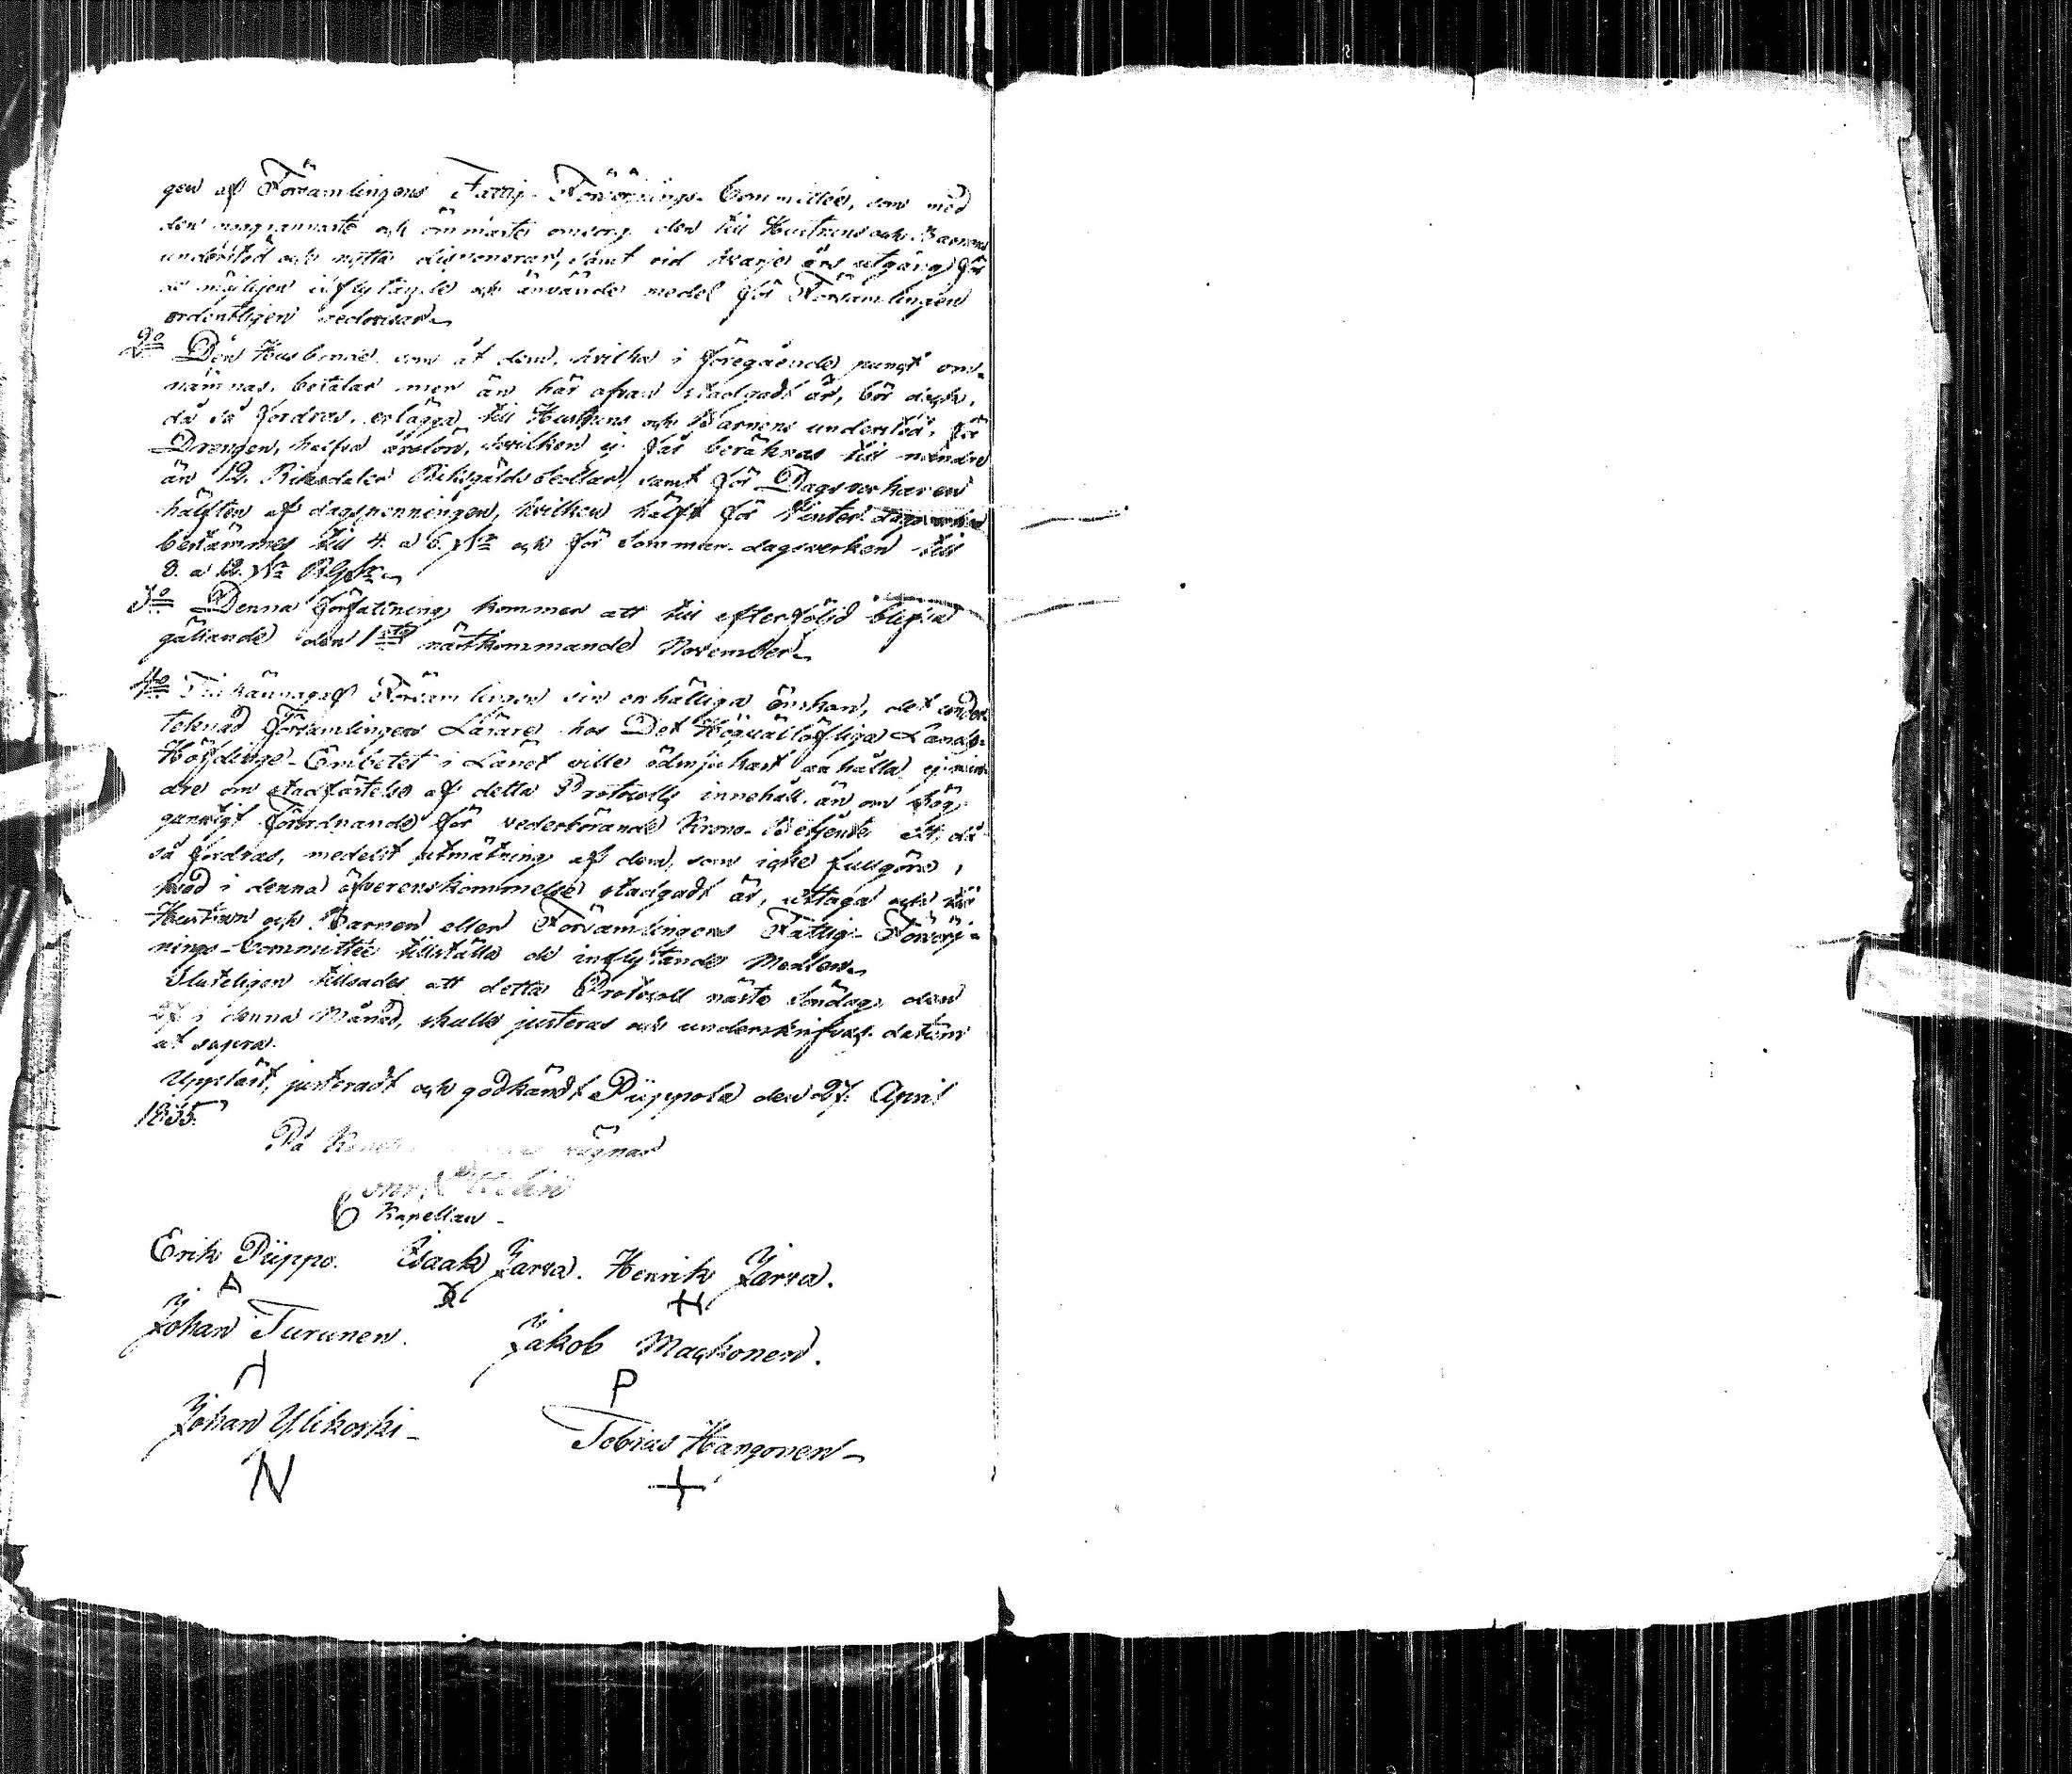 gen af Församlingens Fattig-Försörjnings-Committée, som med
den noggrannaste och ömmaste omsorg den till Hustruns och Barnens
understöd och nytta disponerar, samt vid hvarje års utgång för
de möjligen influtne och använde medel för Församlingen
ordentligen redovisar.
2:o Den Husbonde som åt dem, hvilka i föregående punct om-
nämnas, betalar mer än här ofvan stadgadt är, bör dock,
då så fordras, erlägga till Hustruns och Barnens understöd, för
Drengen, halfva årslön, hvilken ej får beräknas till mindre
än 12. Riksdaler Riksgälds sedlar, samt för Dagsverkaren
hälften af dagspenningen, hvilken hälft för Vinter dagsverken
bestämmes till 4. a 6. och för Sommar-dagsverken till
8. a 12.
3:o Denna författning kommer att till efterföljd blifva
gällande den 1sta nästkommande November.
4:o Tillkännagaf Församlingen sin enhälliga önskan, det under
teknad Församlingens Lärare hos Det Högvällofliga Lands-
Höfdinge-Embetet i Länet ville ödmjukast anhålla, ej min
dre om stadfästelse af detta Protocolls innehåll, än om hög
gunstigt förordnande för vederbörande Krono-Betjente att, då
så fordras, medelst utmätning af dem, som icke fullgöra,
hvad i denna öfverenskommelse stadgadt är, uttaga och till
Hustrun och Barnen eller Församlingens Fattig-Försörj-
nings-Committée tillställa de inflytande Medlen.
Sluteligen tillsades att detta Protocoll nästa Söndag, den
27 i denna Månad, skulle justeras och underskrifvas. datum
ut supra.
Uppläst, justeradt och godkändt Piippola den 27. April
1835.
På vägnar
Kapellan
Erik Piippo. Isaak Jarva. Henrik Jarva.
Johan Turunen. Jakob Mackonen.
P
Johan Ylikoski
N
Tobias Kangonen